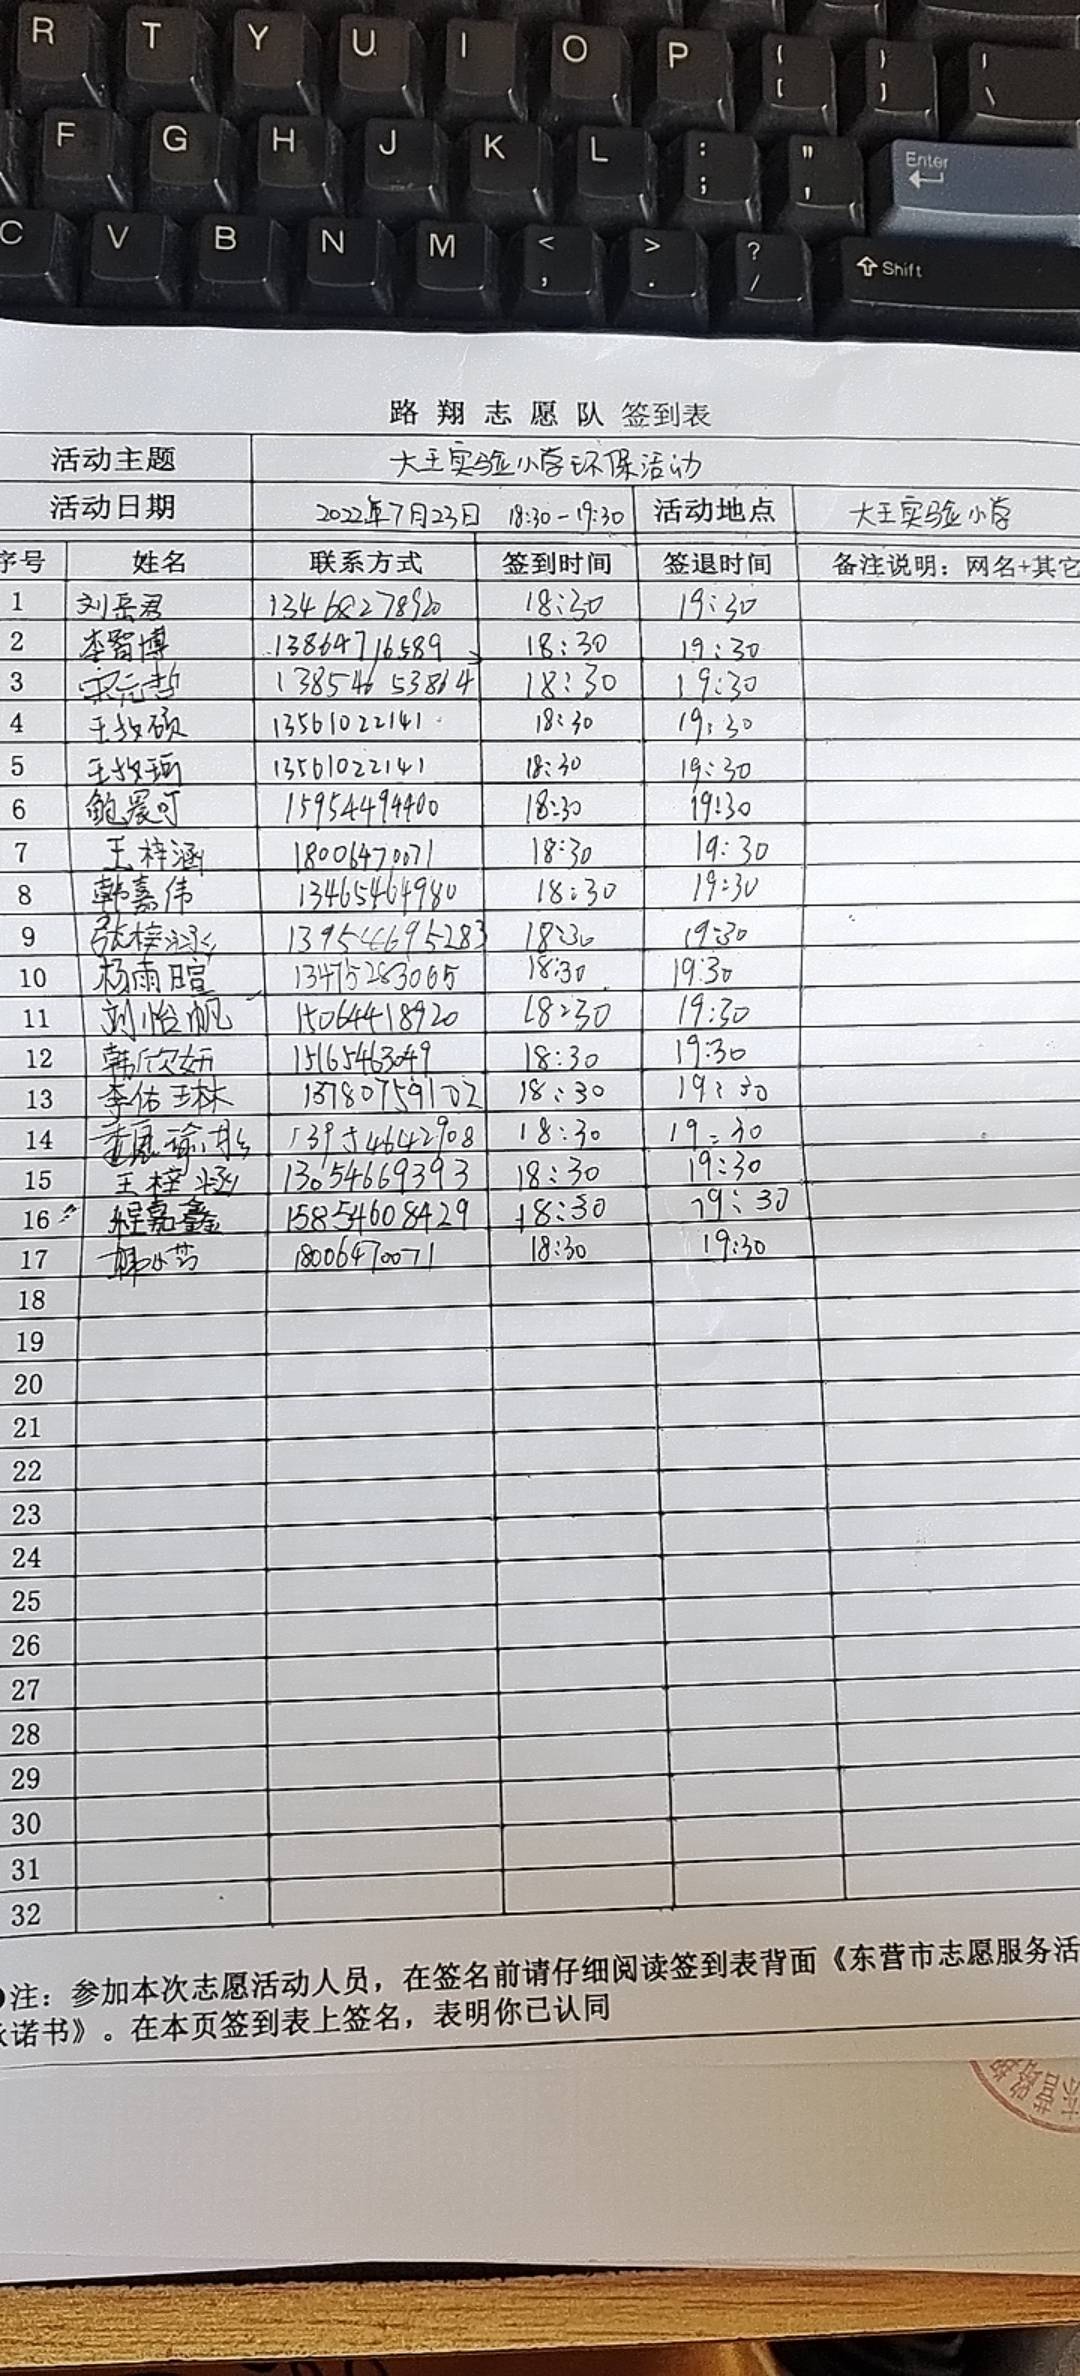 R T Y U I O P { [ } ] | \
F G H J K L : ; " ' Enter
C V B N M < , > . ? / Shift
路翔志愿队签到表
活动主题 大王实验小学环保活动
活动日期 2022年7月23日 18:30-19:30 活动地点 大王实验小学
序号 姓名 联系方式 签到时间 签退时间 备注说明：网名+其它
1 刘岳君 13468278920 18:30 19:30
2 李智博 13864716589 18:30 19:30
3 宋元哲 13854653864 18:30 19:30
4 王牧硕 13561022141 18:30 19:30
5 王牧瑶 13561022141 18:30 19:30
6 15954494400 18:30 19:30
7 王梓涵 18006470071 18:30 19:30
8 韩嘉伟 13465464980 18:30 19:30
9 张梓涵 18:30 19:30
10 杨雨暄 13475283065 18:30 19:30
11 刘怡帆 15064418920 18:30 19:30
12 韩欣妍 15165463049 18:30 19:30
13 李佑 13780759102 18:30 19:30
14 13954642908 18:30 19:30
15 王梓涵 13654669393 18:30 19:30
16 程嘉鑫 15854608429 18:30 19:30
17 18006470071 18:30 19:30
18
19
20
21
22
23
24
25
26
27
28
29
30
31
32
注：参加本次志愿活动人员，在签名前请仔细阅读签到表背面《东营市志愿服务活
诺书》。在本页签到表上签名，表明你已认同